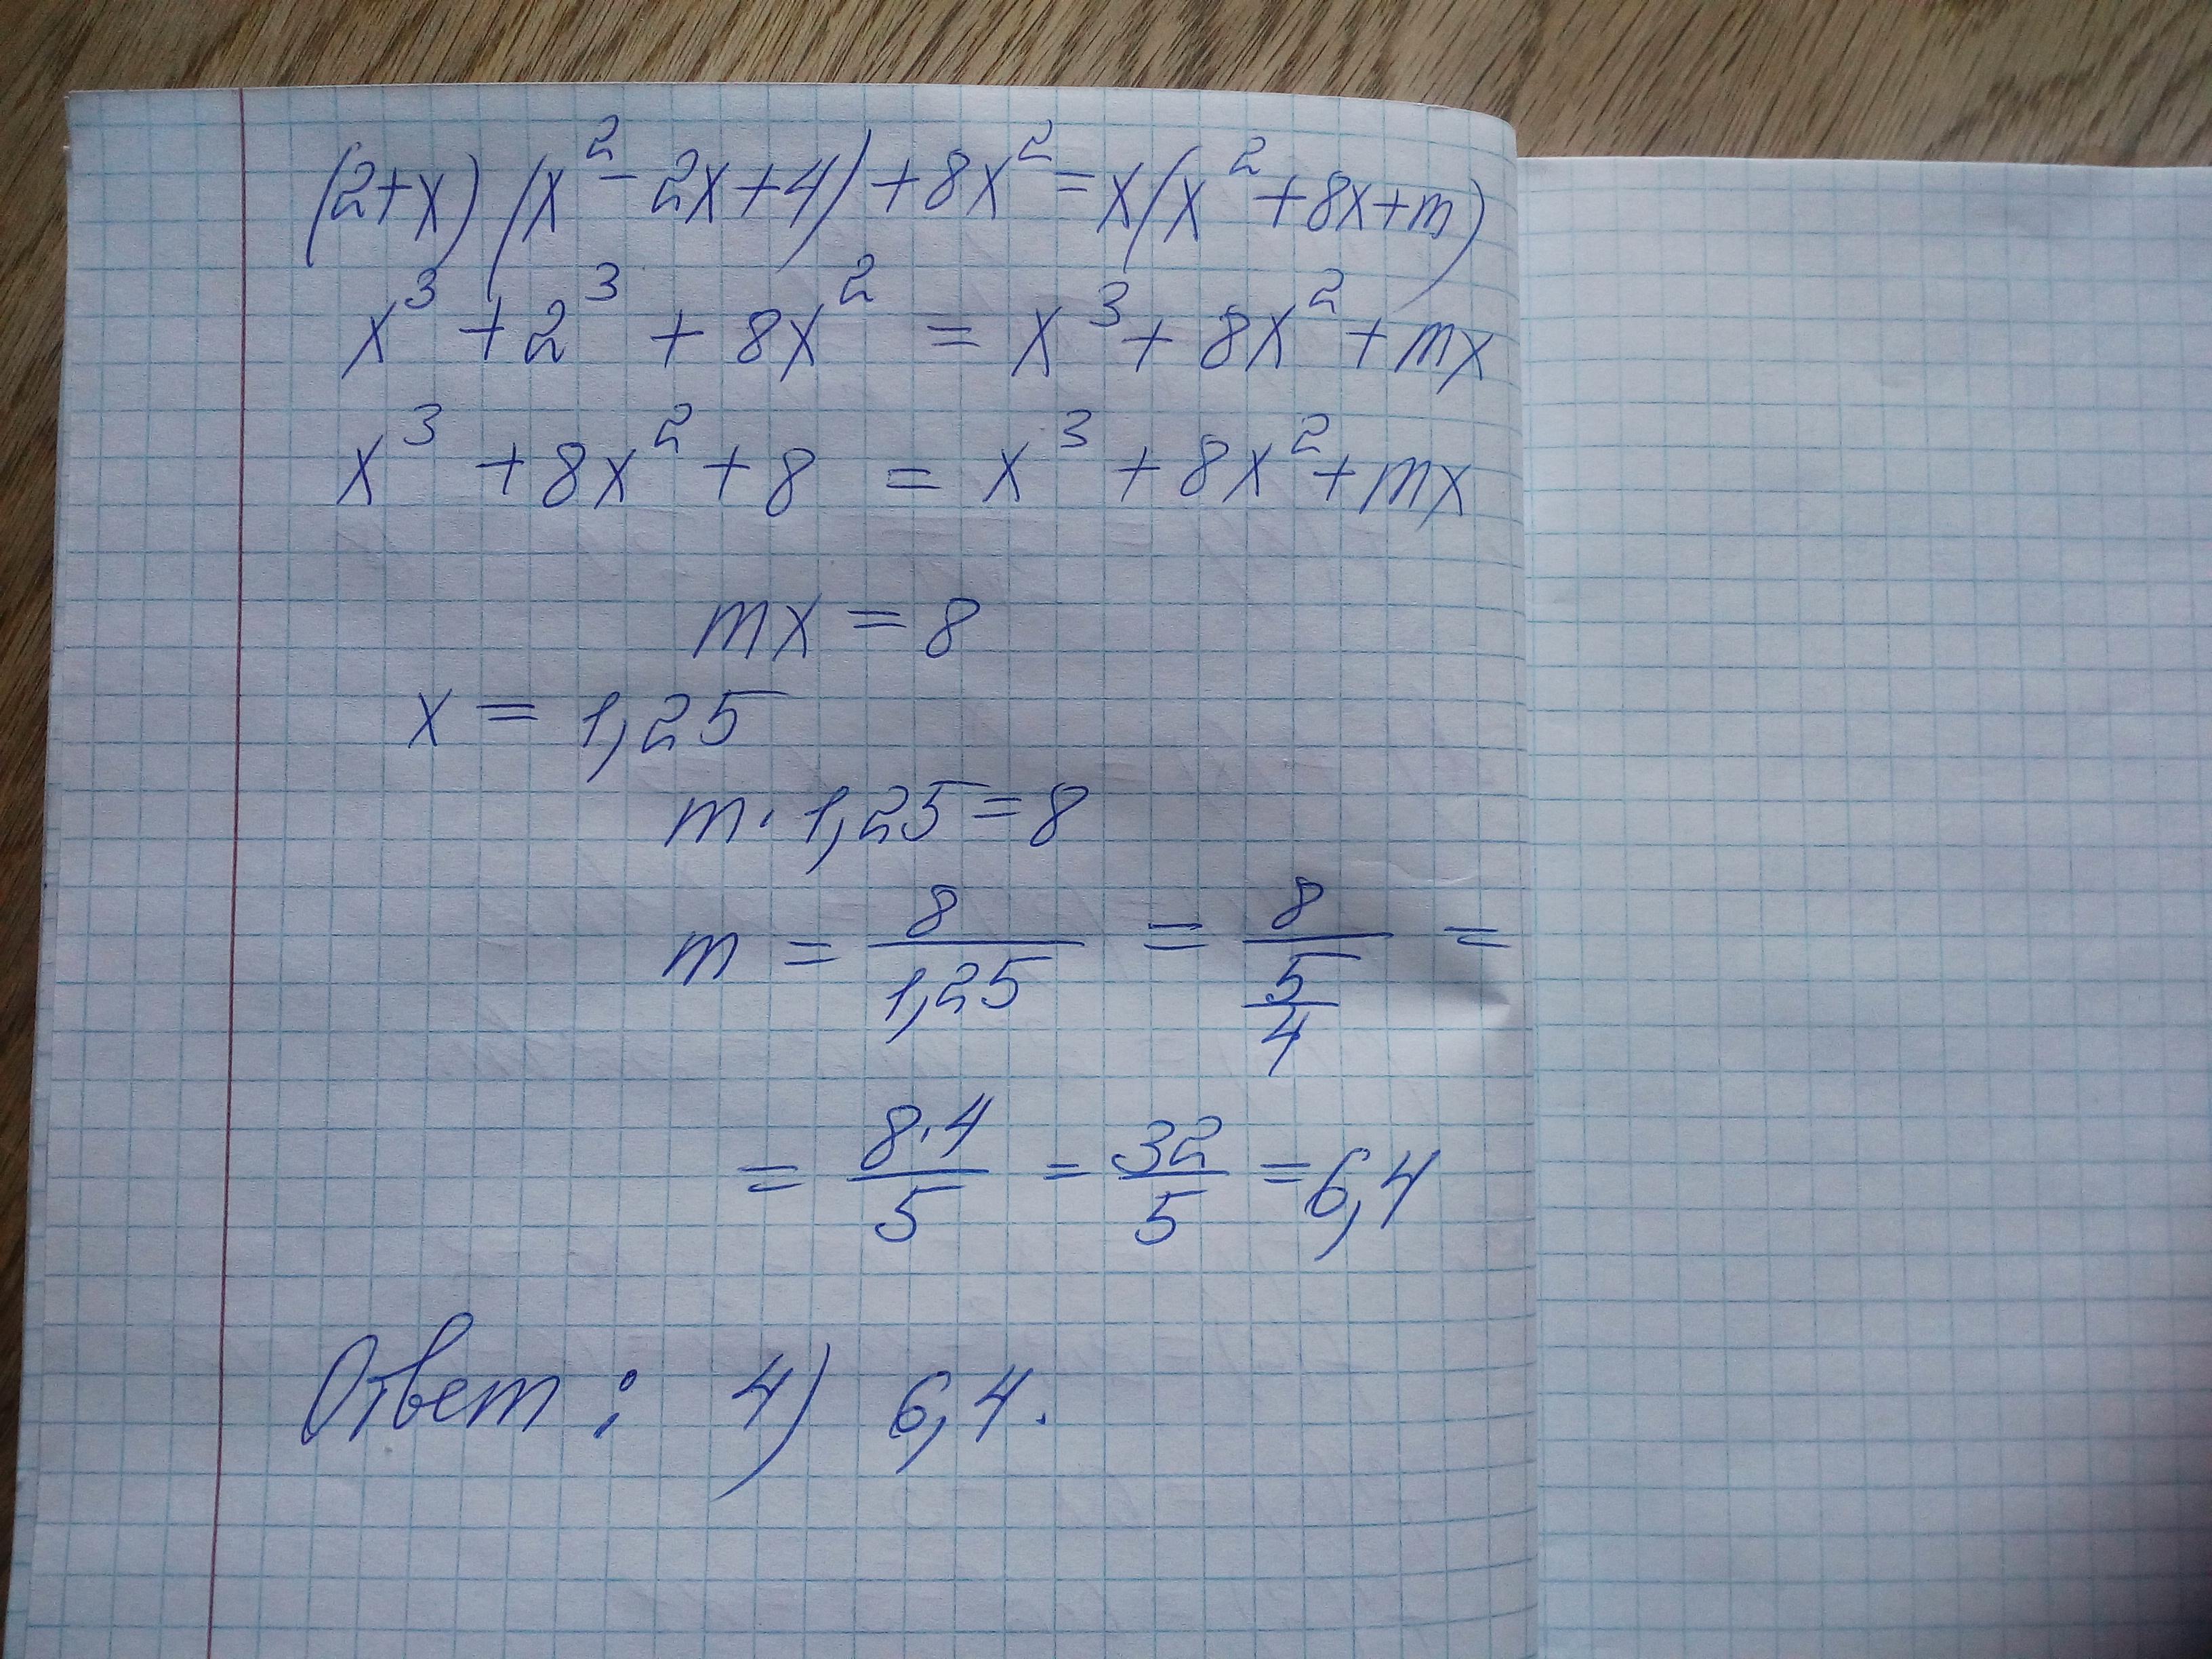 (2+x)(x²-2x+4)+8x²=x(x²+8x+m)
x³+2³+8x²=x³+8x²+mx
x³+8x²+8=x³+8x²+mx
mx=8
x=1,25
m·1,25=8
m = 8/1,25 = 8/(5/4) =
= 8·4/5 = 32/5 = 6,4
Ответ: 4) 6,4.